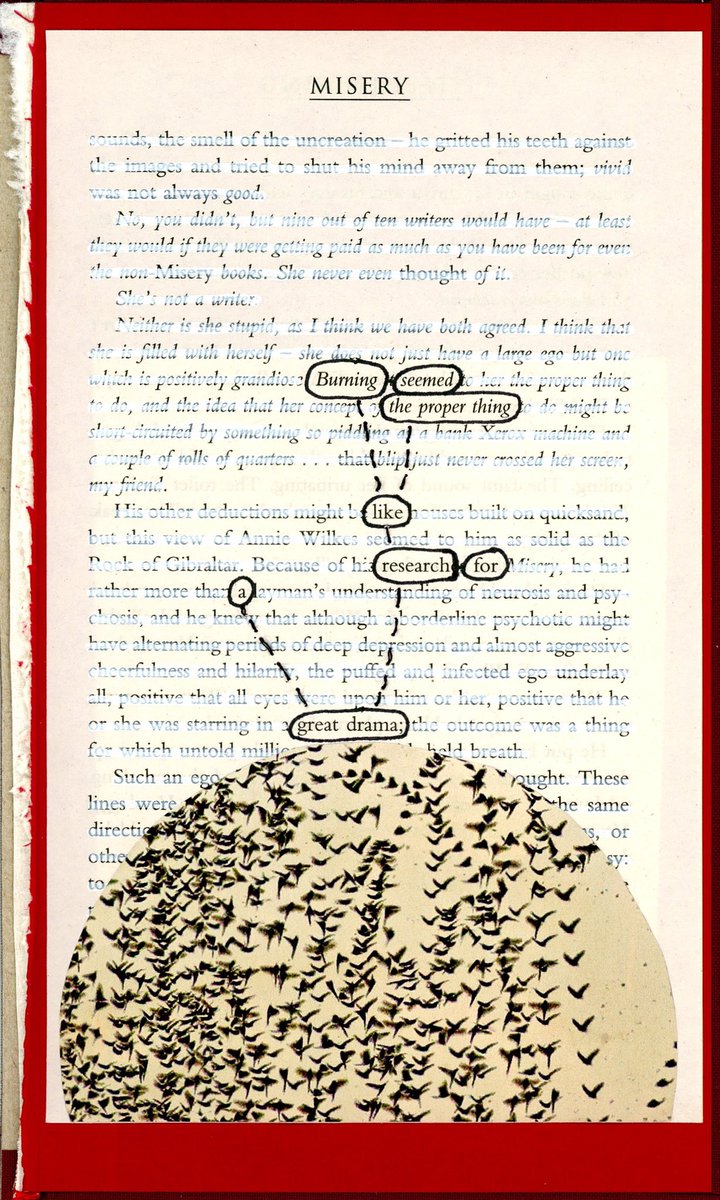 MISERY
sounds, the smell of the uncreation – he gritted his teeth against
the images and tried to shut his mind away from them; vivid
was not always good.
No, you didn't, but nine out of ten writers would have – at least
they would if they were getting paid as much as you have been for even
the non-Misery books. She never even thought of it.
She's not a writer.
Neither is she stupid, as I think we have both agreed. I think that
she is filled with herself – she does not just have a large ego but one
which is positively grandiose Burning seemed to her the proper thing
to do, and the idea that her concept of the proper thing to do might be
short-circuited by something so piddling as a bank Xerox machine and
a couple of rolls of quarters . . . that blip just never crossed her screen,
my friend.
His other deductions might be like houses built on quicksand,
but this view of Annie Wilkes seemed to him as solid as the
Rock of Gibraltar. Because of his research for Misery, he had
rather more than a layman's understanding of neurosis and psy-
chosis, and he knew that although a borderline psychotic might
have alternating periods of deep depression and almost aggressive
cheerfulness and hilarity, the puffed and infected ego underlay
all, positive that all eyes were upon him or her, positive that he
or she was starring in a great drama; the outcome was a thing
for which untold millio held breath.
Such an ego ought. These
lines were the same
directio s, or
othe sy:
to